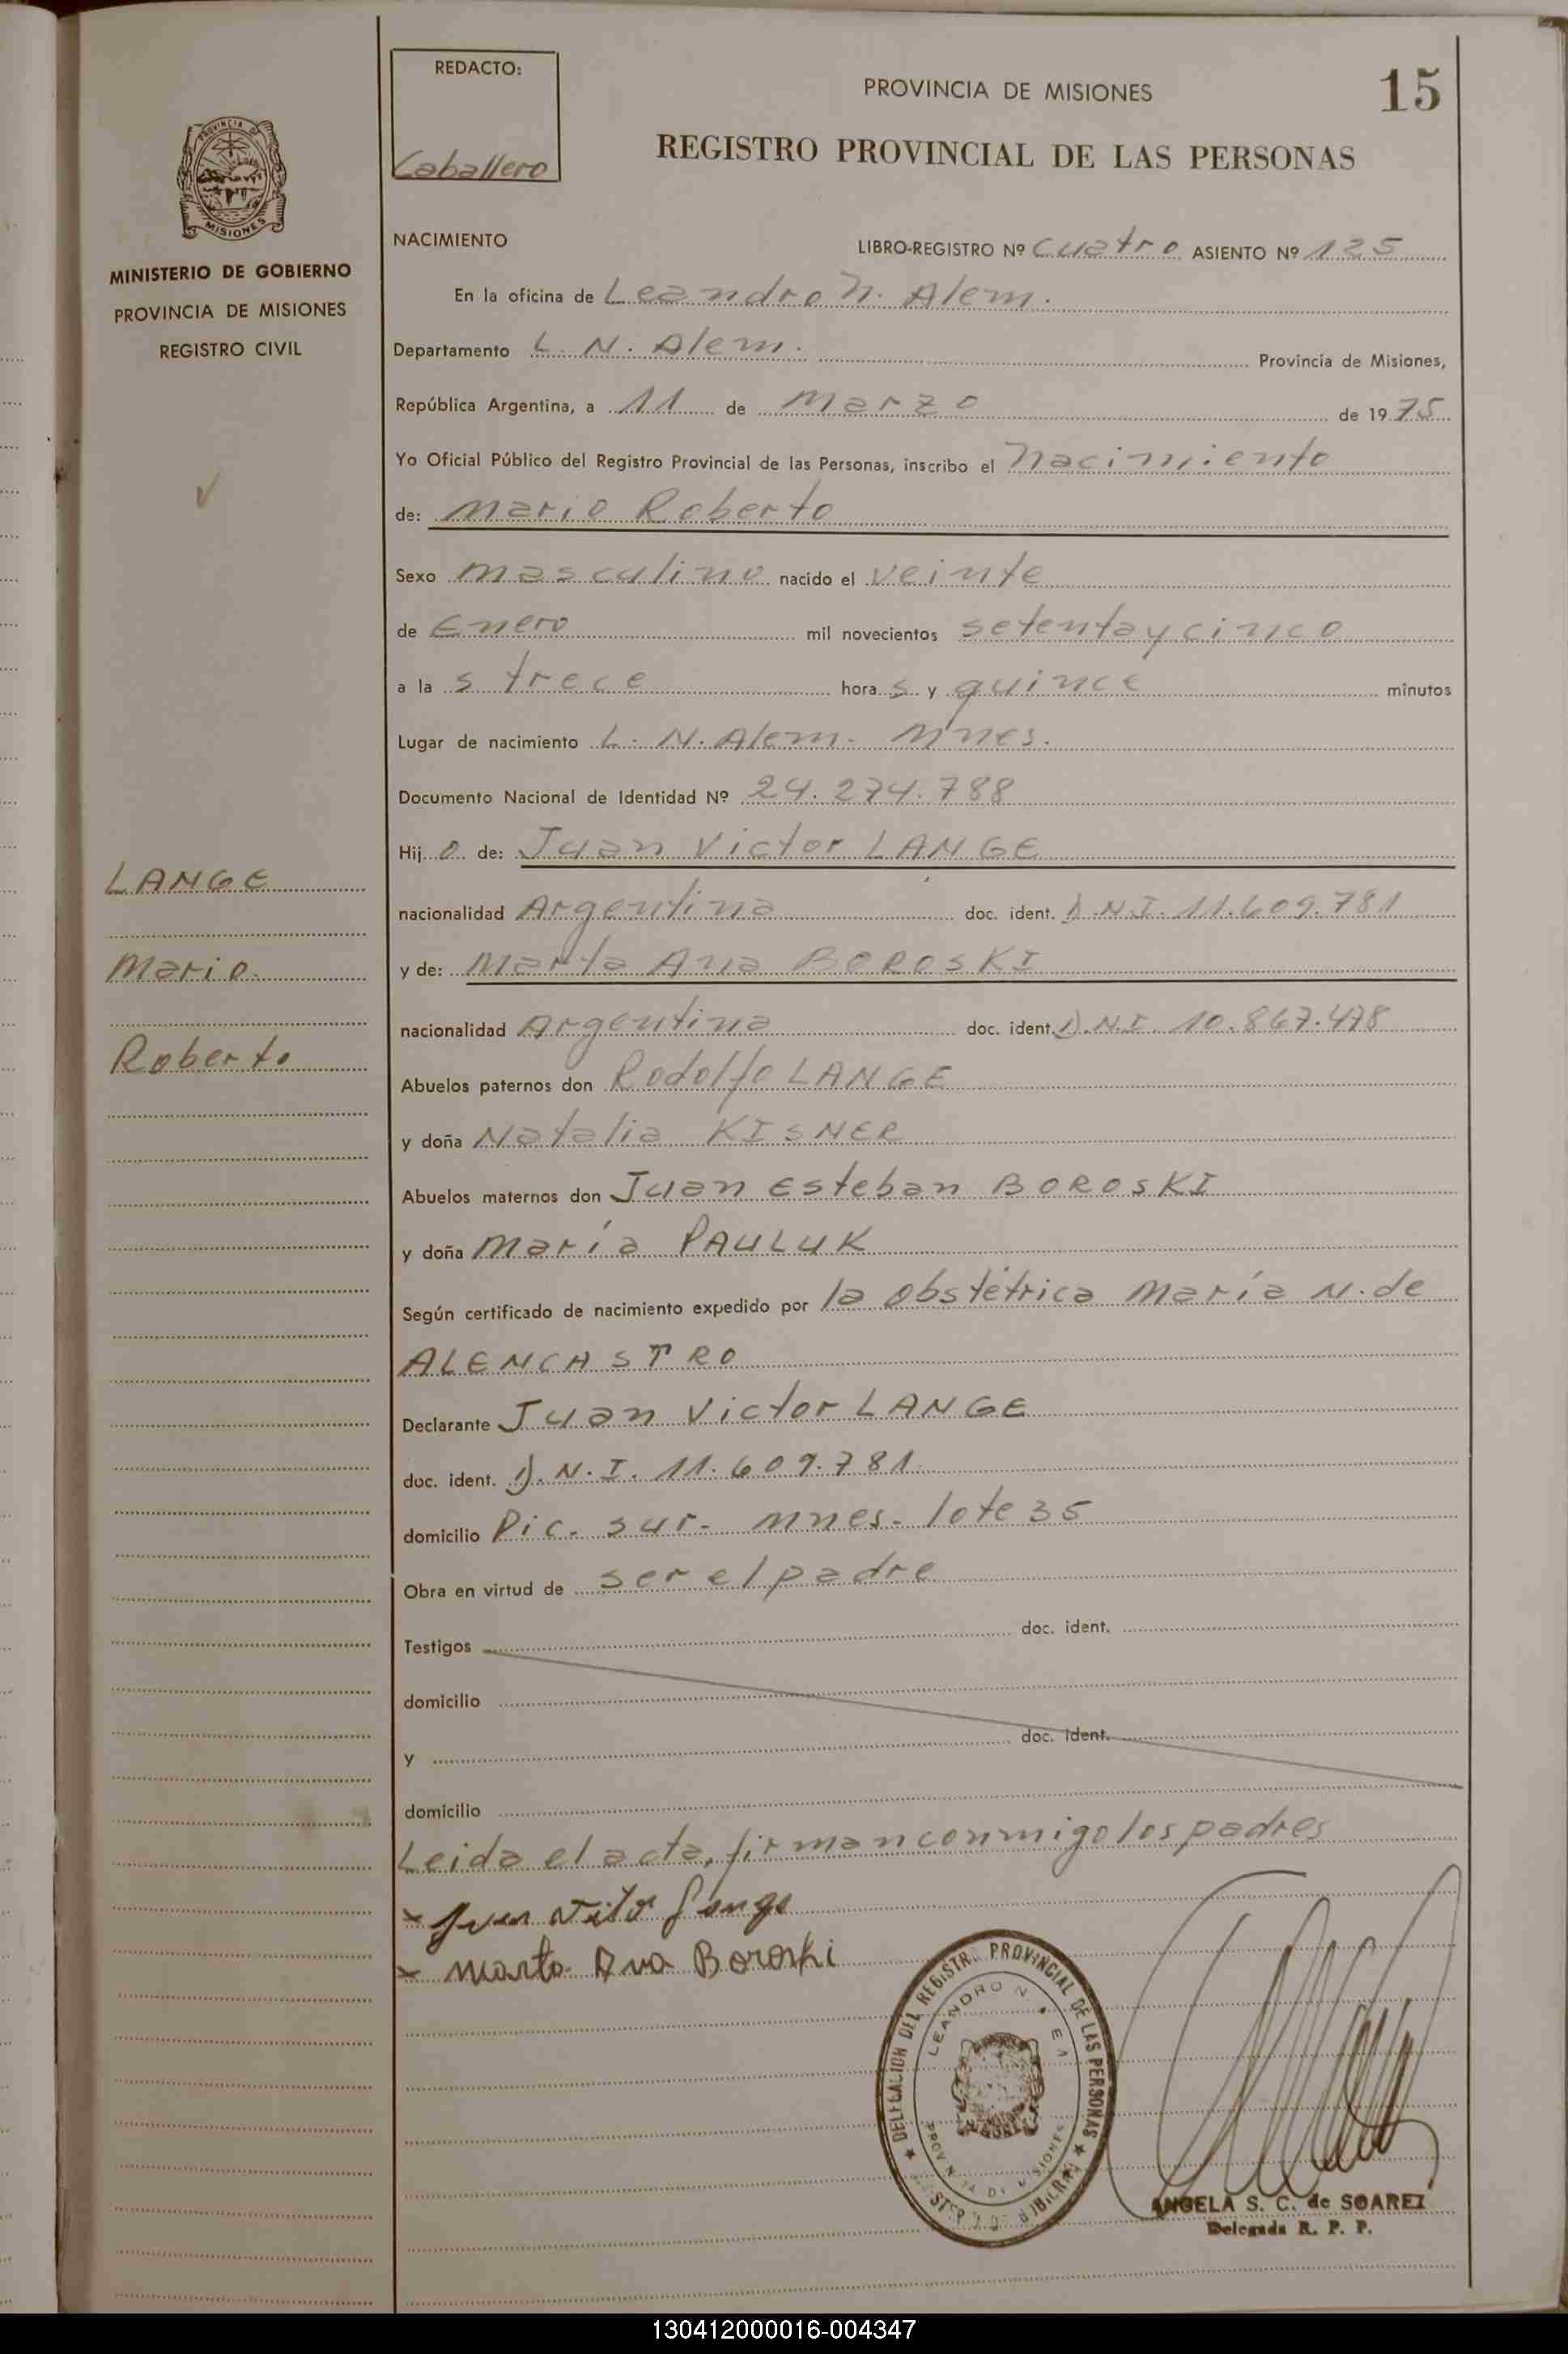 REDACTO:
Caballero
PROVINCIA DE MISIONES
15
REGISTRO PROVINCIAL DE LAS PERSONAS
PROVINCIA DE
MISIONES
MINISTERIO DE GOBIERNO
PROVINCIA DE MISIONES
REGISTRO CIVIL
NACIMIENTO
LIBRO-REGISTRO Nº Cuatro ASIENTO Nº 125
En la oficina de Leandro N. Alem.
Departamento L. N. Alem. Provincia de Misiones,
República Argentina, a 11 de Marzo de 1975
Yo Oficial Público del Registro Provincial de las Personas, inscribo el Nacimiento
de: Mario Roberto
Sexo Masculino nacido el veinte
de Enero mil novecientos setentaycinco
a la s trece hora s y quince minutos
Lugar de nacimiento L. N. Alem. Mnes.
Documento Nacional de Identidad Nº 24.274.788
Hij o de: Juan Victor LANGE
LANGE
nacionalidad Argentina doc. ident. D.N.I. 11.609.781
Mario
y de: Marta Ana BOROSKI
nacionalidad Argentina doc. ident. D.N.I. 10.867.478
Roberto
Abuelos paternos don Rodolfo LANGE
y doña Natalia KISNER
Abuelos maternos don Juan Esteban BOROSKI
y doña María PAULUK
Según certificado de nacimiento expedido por la Obstétrica María N. de
ALENCASTRO
Declarante Juan Victor LANGE
doc. ident. D.N.I. 11.609.781
domicilio Pic. sur- Mnes- lote 35
Obra en virtud de ser el padre
Testigos doc. ident.
domicilio
y doc. ident.
domicilio
Leida el acta, firman conmigo los padres
x Juan Vitor Lange
x Marta Ana Boroski
DELEGACION DEL REGISTRO PROVINCIAL DE LAS PERSONAS
LEANDRO N.
PROVINCIA DE MISIONES
ANGELA S. C. de SOAREZ
Delegada R. P. P.
130412000016-004347